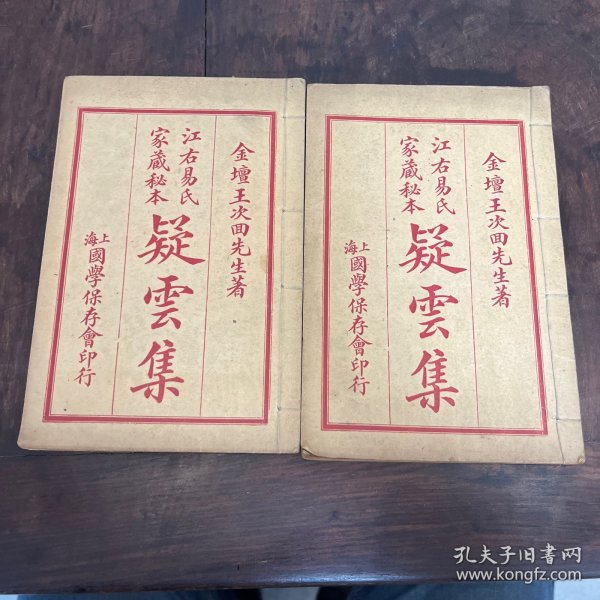 金壇王次回先生著
江右易氏
家藏秘本
疑雲集
上海國學保存會印行
金壇王次回先生著
江右易氏
家藏秘本
疑雲集
上海國學保存會印行
孔夫子旧书网
www.kongfz.com